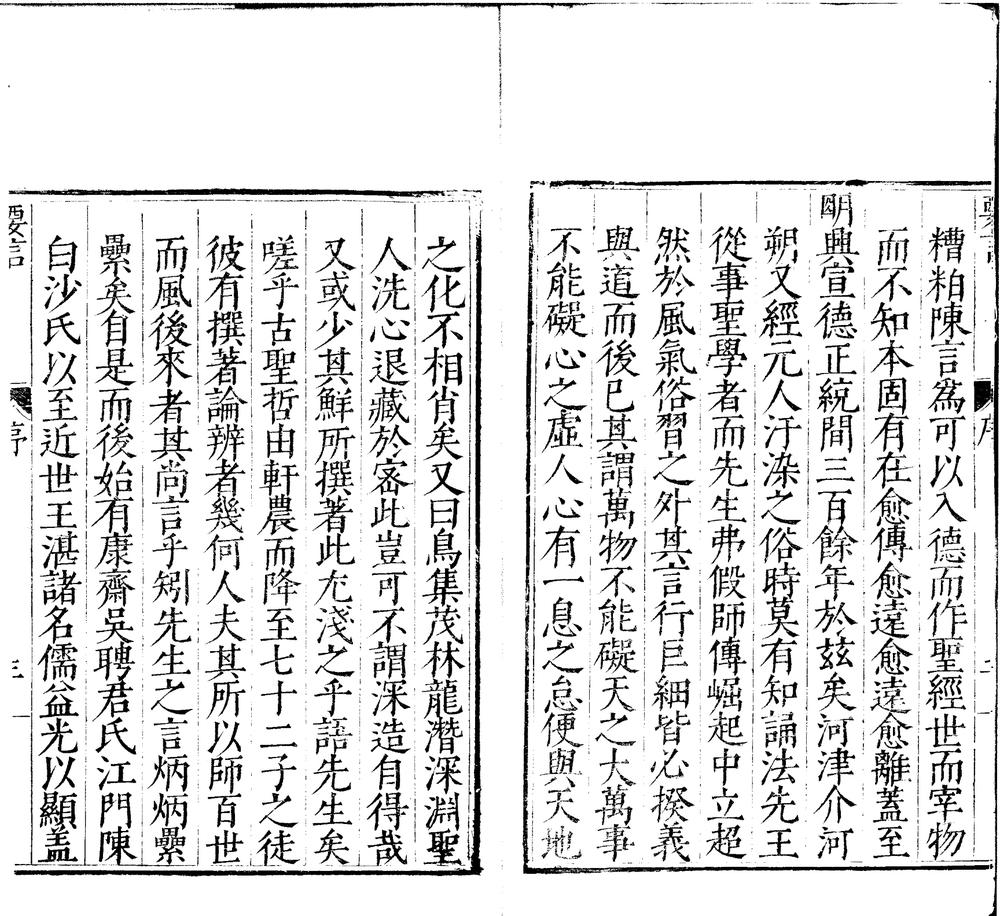 糟粕陳言爲可以入德而作聖經世而宰物
而不知本固有在愈傳愈遠愈遠愈離蓋至
明興宣德正統間三百餘年於茲矣河津介河
朔又經元人汙染之俗時莫有知誦法先王
從事聖學者而先生弗假師傳崛起中立超
然於風氣俗習之外其言行巨細皆必揆義
與道而後已其謂萬物不能礙天之大萬事
不能礙心之虛人心有一息之怠便與天地
之化不相肖矣又曰鳥集茂林龍潛深淵聖
人洗心退藏於密此豈可不謂深造自得哉
又或少其鮮所撰著此尤淺之乎語先生矣
嗟乎古聖哲由軒農而降至七十二子之徒
彼有撰著論辨者幾何人夫其所以師百世
而風後來者其尚言乎矧先生之言炳炳纍
纍矣自是而後始有康齋吳聘君氏江門陳
白沙氏以至近世王湛諸名儒益光以顯蓋
要言
序
三